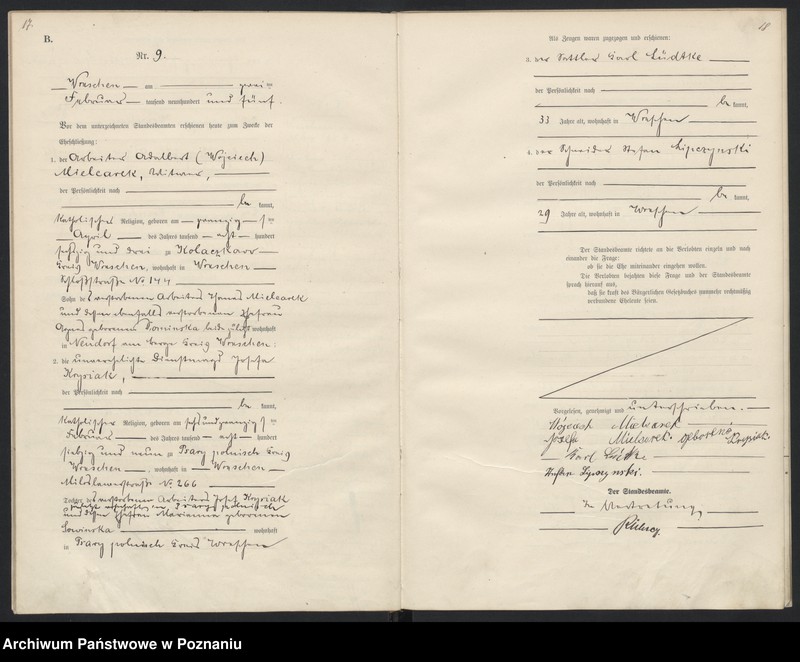 17.
B.
Nr. 9.
Wreschen am zwei ten
Februar tausend neunhundert und fünf.
Vor dem unterzeichneten Standesbeamten erschienen heute zum Zwecke der
Eheschließung:
1. der Arbeiter Adalbert (Wojciech)
Mielcarek, Witwer,
der Persönlichkeit nach
be kannt,
katholischer Religion, geboren am zwanzig sten
April des Jahres tausend acht hundert
siebzig und drei zu Kolaczkowo
Kreis Wreschen, wohnhaft in Wreschen
Schloßstraße No 144
Sohn des verstorbenen Arbeiters Thomas Mielcarek
und dessen ebenfalls verstorbenen Ehefrau
Agnes geborenen Tominska beide zuletzt wohnhaft
in Neudorf am Berge Kreis Wreschen.
2. die unverehelichte Dienstmagd Josefa
Krysiak,
der Persönlichkeit nach
be kannt,
katholischer Religion, geboren am sechsundzwanzig sten
Februar des Jahres tausend acht hundert
siebzig und neun zu Psary polnisch Kreis
Wreschen, wohnhaft in Wreschen
Miloslawerstraße No 266
Tochter des verstorbenen Arbeiters Josef Krysiak
zuletzt wohnhaft in Psary polnisch
und dessen Ehefrau Marianna geborenen
Sowinska wohnhaft
in Psary polnisch Kreis Wreschen
18
Als Zeugen waren zugezogen und erschienen:
3. der Sattler Karl Lüdtke
der Persönlichkeit nach
be kannt,
33 Jahre alt, wohnhaft in Wreschen
4. der Schneider Stefan Lipczynski
der Persönlichkeit nach
be kannt,
29 Jahre alt, wohnhaft in Wreschen
Der Standesbeamte richtete an die Verlobten einzeln und nach
einander die Frage:
ob sie die Ehe miteinander eingehen wollen.
Die Verlobten bejahten diese Frage und der Standesbeamte
sprach hierauf aus,
daß sie kraft des Bürgerlichen Gesetzbuches nunmehr rechtmäßig
verbundene Eheleute seien.
Vorgelesen, genehmigt und unterschrieben.
Wojciech Mielcarek
Józefa Mielcarek geborene Krysiak
Karl Lüdtke
Stefan Lipczynski.
Der Standesbeamte.
In Vertretung,
Archiwum Państwowe w Poznaniu